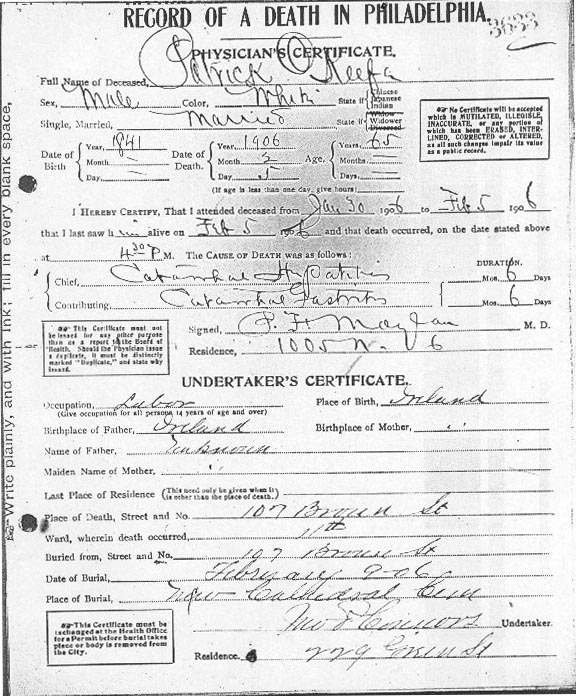 RECORD OF A DEATH IN PHILADELPHIA.
3633
PHYSICIAN'S CERTIFICATE.
Full Name of Deceased, Patrick O'Keefa
Sex, Male Color, White State if Chinese Japanese Indian
Single, Married, Married State if Widow Widower Divorced
Date of Birth Year, 1841 Month — Day, — Date of Death. Year, 1906 Month 2 Day, 5 Age, Years, 65 Months — Days —
(If age is less than one day, give hours)
I HEREBY CERTIFY, That I attended deceased from Jan 30 1906 to Feb 5 1906
that I last saw him alive on Feb 5 1906 and that death occurred, on the date stated above
at 4 30 P M. The CAUSE OF DEATH was as follows:
DURATION.
Chief, Catarrhal Hepatitis Mos. 6 Days
Contributing, Catarrhal Gastritis Mos. 6 Days
Signed, P. H. Moylan M. D.
Residence, 1005 N. 6
☞ No Certificate will be accepted which is MUTILATED, ILLEGIBLE, INACCURATE, or any portion of which has been ERASED, INTERLINED, CORRECTED or ALTERED, as all such changes impair its value as a public record.
☞ This Certificate must not be issued for any other purpose than as a report to the Board of Health. Should the Physician issue a duplicate, it must be distinctly marked "Duplicate," and state why issued.
UNDERTAKER'S CERTIFICATE.
Occupation, Labor Place of Birth, Ireland
(Give occupation for all persons 14 years of age and over)
Birthplace of Father, Ireland Birthplace of Mother, "
Name of Father, Unknown
Maiden Name of Mother, "
Last Place of Residence (This need only be given when it is other than the place of death.)
Place of Death, Street and No. 107 Brown St
Ward, wherein death occurred, 11th
Buried from, Street and No. 107 Brown St
Date of Burial, February 9-06
Place of Burial, New Cathedral Cem
Connors Undertaker.
Residence, 229 Green St
☞ This Certificate must be exchanged at the Health Office for a Permit before burial takes place or body is removed from the City.
☞ Write plainly, and with ink; fill in every blank space,